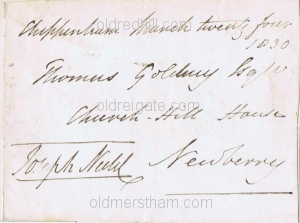 Chippenham March twenty four
1830
Thomas Goldney Esqr
oldreigate.com
Church-Hill House
Joseph Neeld Newberry
oldmerstham.com